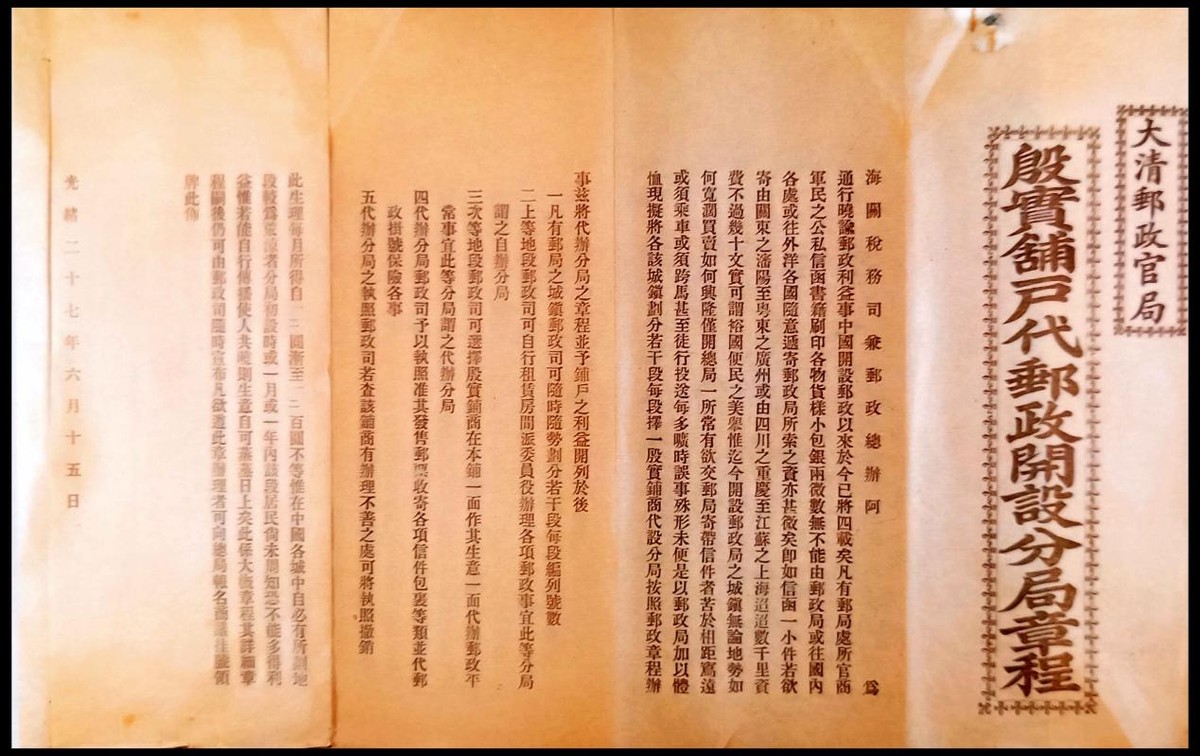 大清郵政官局
殷實舖戶代郵政開設分局章程
海關稅務司兼郵政總辦阿 為
通行曉諭郵政利益事中國開設郵政以來於今已將四載矣凡有郵局處所官商
軍民之公私信函書籍刷印各物貨樣小包銀兩微數無不能由郵政局或往國內
各處或往外洋各國隨意遞寄郵政局所索之資亦甚微矣即如信函一小件若欲
寄由關東之瀋陽至粵東之廣州或由四川之重慶至江蘇之上海迢迢數千里資
費不過幾十文實可謂裕國便民之美舉惟迄今開設郵政局之城鎮無論地勢如
何寬濶買賣如何興隆僅開總局一所常有欲交郵局寄帶信件者苦於相距寫遠
或須乘車或須跨馬甚至徒行投送每多曠時誤事殊形未便是以郵政局加以體
恤現擬將各該城鎮劃分若干段每段擇一殷實鋪商代設分局按照郵政章程辦
事茲將代辦分局之章程並予鋪戶之利益開列於後
一凡有郵局之城鎮郵政司可隨時隨勢劃分若干段每段編列號數
二上等地段郵政司可自行租賃房間派委員役辦理各項郵政事宜此等分局
謂之自辦分局
三次等地段郵政司可選擇殷實鋪商在本鋪一面作其生意一面代辦郵政平
常事宜此等分局謂之代辦分局
四代辦分局郵政司予以執照准其發售郵票收寄各項信件包裹等類並代郵
政掛號保險各事
五代辦分局之執照郵政司若查該鋪商有辦理不善之處可將執照撤銷
此生理每月所得自一二圓漸至一二百圓不等惟在中國各城中自必有所劃地
段較為荒涼者分局初設時或一月或一年內該段居民尚未周知恐不能多得利
益惟若能自行傳揚使人共曉則生意自可蒸蒸日上矣此係大概章程其詳細章
程嗣後仍可由郵政司隨時宣布凡欲遵此章辦理者可向總局報名註號領
牌此佈
光緒二十七年六月十五日